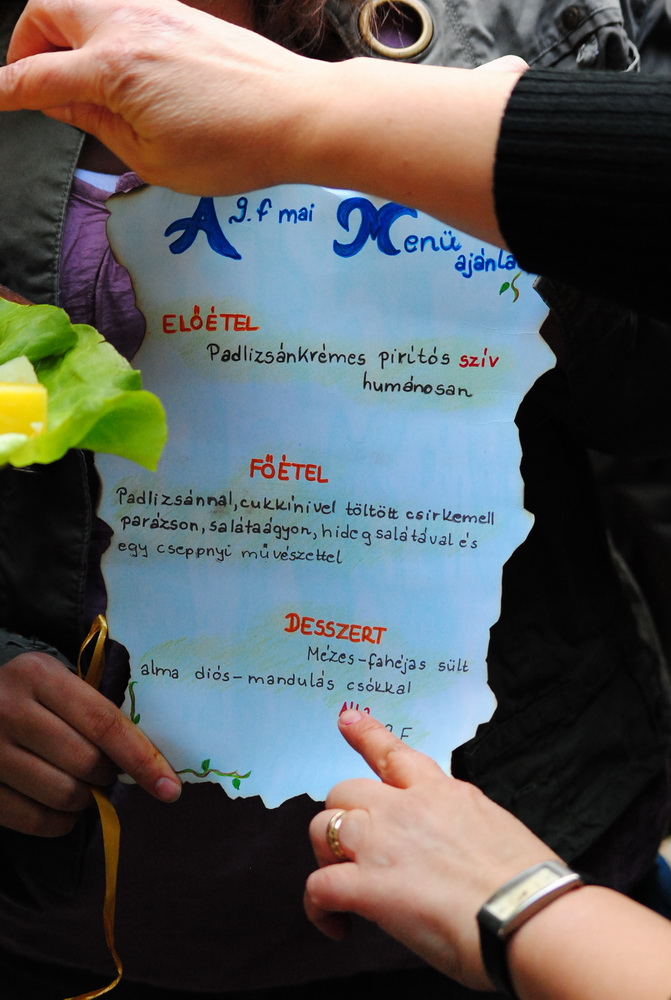 A 9.f mai Menü
ajánla
ELŐÉTEL
Padlizsánkrémes pirítós szív
humánosan
FŐÉTEL
Padlizsánnal, cukkínivel töltött csirkemell
parázson, salátaágyon, hideg salátával és
egy cseppnyi művészettel
DESSZERT
Mézes-fahéjas sült
alma diós-mandulás csókkal